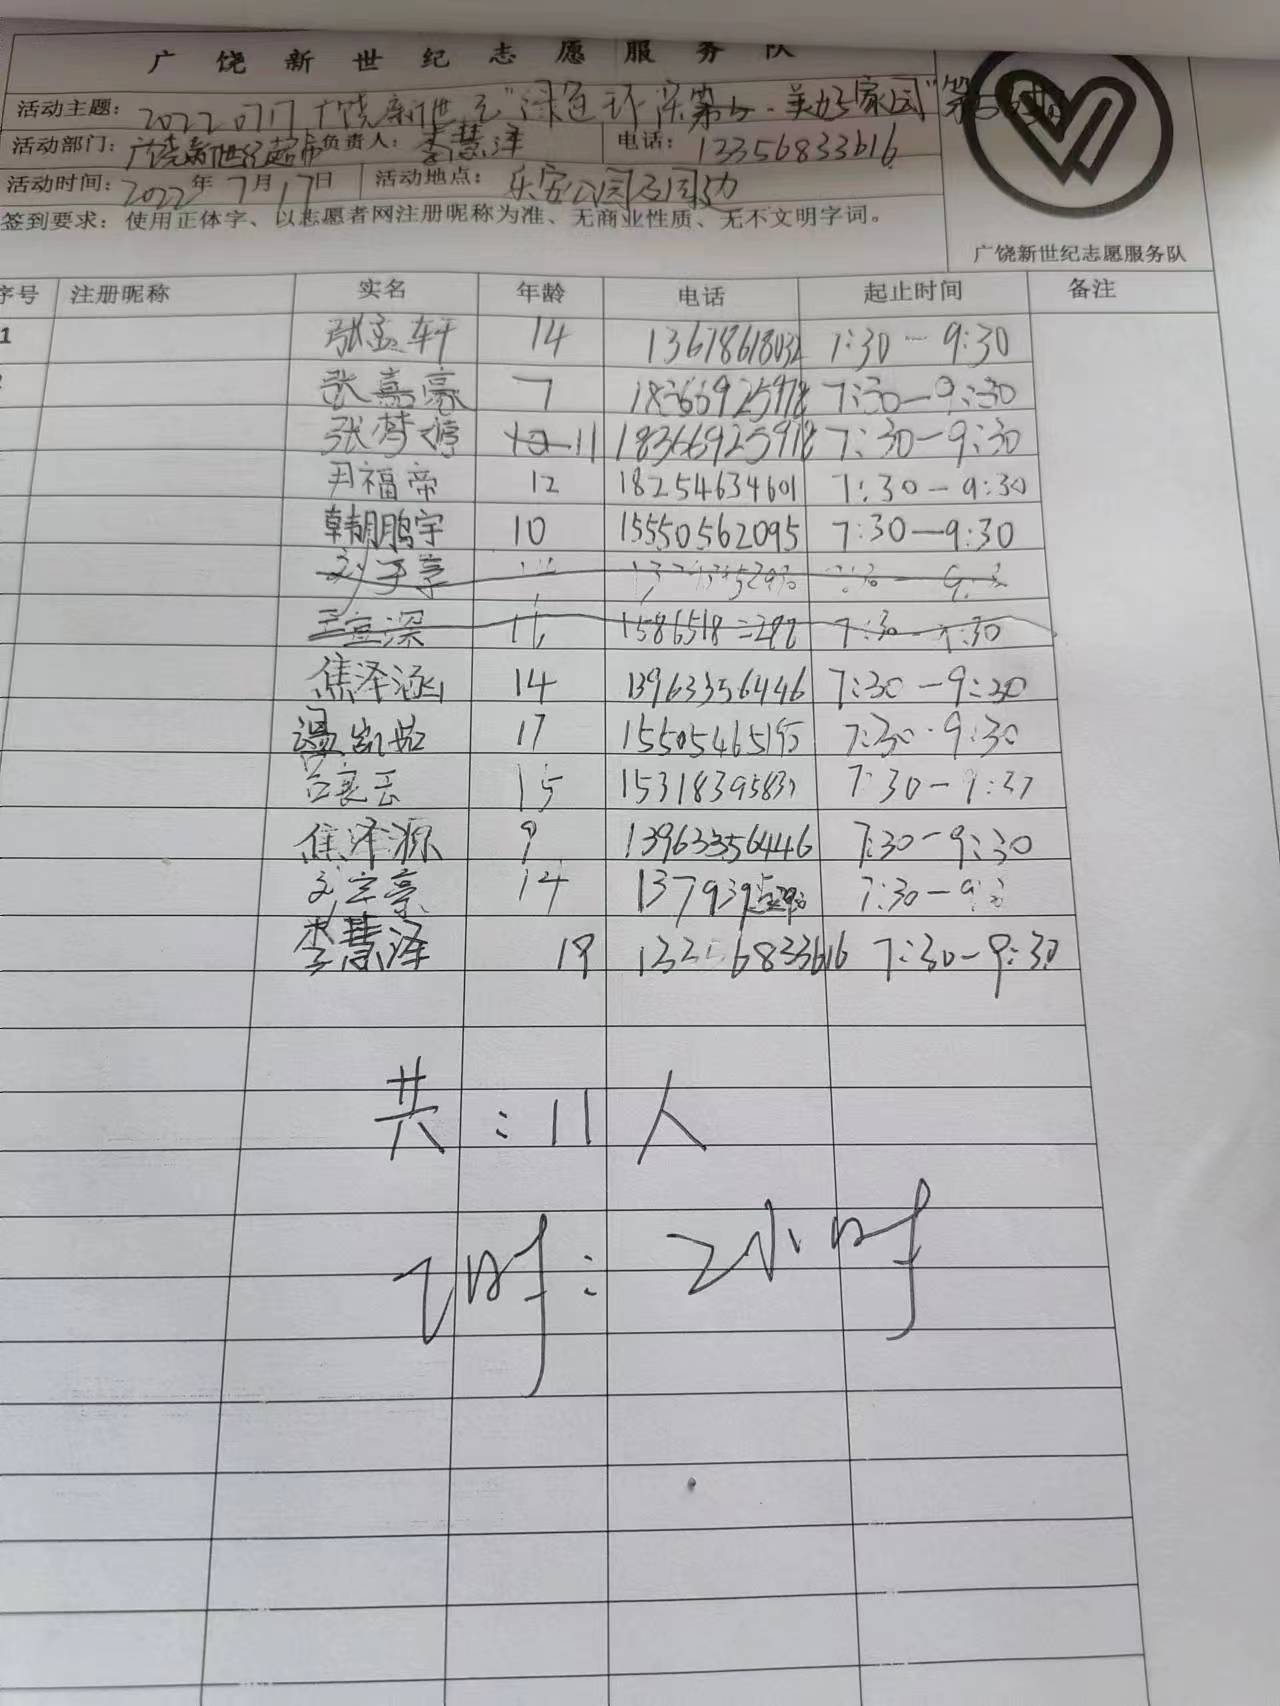 广饶新世纪志愿服务队
活动主题：20220717广饶新世纪"绿色环 美好家园"第
活动部门：广饶新世纪超市 负责人：李慧泽 电话：13356833616
活动时间：2022年7月17日 活动地点：乐安公园
签到要求：使用正体字、以志愿者网注册昵称为准、无商业性质、无不文明字词。
广饶新世纪志愿服务队
序号 注册昵称 实名 年龄 电话 起止时间 备注
1 张孟轩 14 13678618032 7:30-9:30
张嘉豪 7 18366925978 7:30-9:30
张梦婷 11 7:30-9:30
尹福帝 12 18254634601 7:30-9:30
韩鹏宇 10 15550562095 7:30-9:30
深 11 7:30-9:30
焦泽涵 14 13963356446 7:30-9:30
温凯茹 17 7:30-9:30
15 7:30-9:30
焦泽源 9 13963356446 7:30-9:30
刘宇豪 14 7:30-9:
李慧泽 19 13356833616 7:30-9:30
共:11人
时:2小时